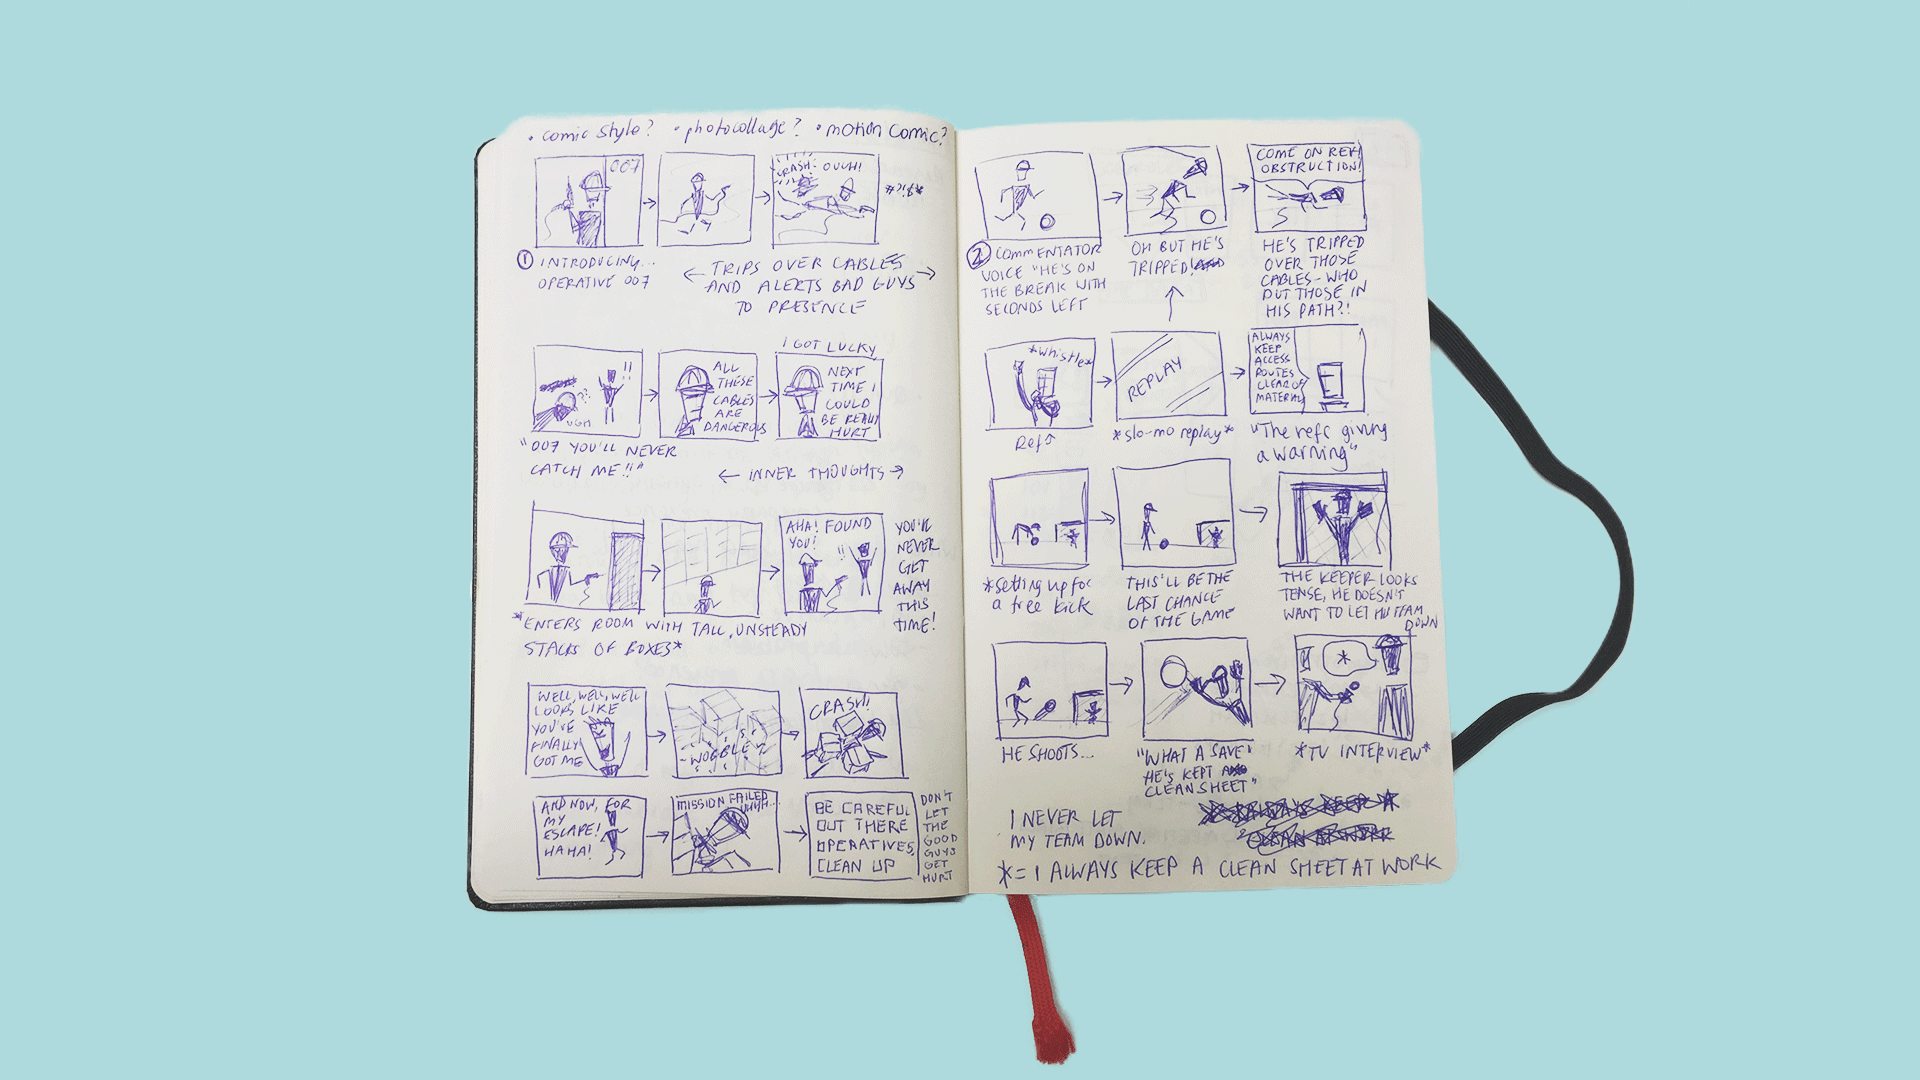 • comic style? • photocollage? • motion comic?
007
CRASH! OUUH!
#?!&*
① INTRODUCING...
OPERATIVE 007
← TRIPS OVER CABLES →
AND ALERTS BAD GUYS
TO PRESENCE
!!
??
UGH
ALL
THESE
CABLES
ARE
DANGEROUS
I GOT LUCKY
NEXT
TIME I
COULD
BE REALLY
HURT
"007 YOU'LL NEVER
CATCH ME!!"
← INNER THOUGHTS →
AHA! FOUND
YOU!
!!
YOU'LL
NEVER
GET
AWAY
THIS
TIME!
*ENTERS ROOM WITH TALL, UNSTEADY
STACKS OF BOXES*
WELL, WELL, WELL
LOOKS LIKE
YOU'VE
FINALLY
GOT ME
~WOBBLE~
CRASH!
AND NOW, FOR
MY
ESCAPE!
HAHA!
MISSION FAILED
UHHH...
BE CAREFUL
OUT THERE
OPERATIVES,
CLEAN UP
DON'T
LET
THE
GOOD
GUYS
GET
HURT
② COMMENTATOR
VOICE "HE'S ON
THE BREAK WITH
SECONDS LEFT
OH BUT HE'S
TRIPPED!
COME ON REF!
OBSTRUCTION!
HE'S TRIPPED
OVER THOSE
CABLES - WHO
PUT THOSE IN
HIS PATH?!
*whistle*
Ref↑
REPLAY
*slo-mo replay*
ALWAYS
KEEP
ACCESS
ROUTES
CLEAR OF
MATERIAL
"The refs giving
a warning"
*setting up for
a free kick
THIS'LL BE THE
LAST CHANCE
OF THE GAME
THE KEEPER LOOKS
TENSE, HE DOESN'T
WANT TO LET HIS TEAM
DOWN
HE SHOOTS...
"WHAT A SAVE!
HE'S KEPT A
CLEAN SHEET"
*
*TV INTERVIEW*
I NEVER LET
MY TEAM DOWN.
*= I ALWAYS KEEP A CLEAN SHEET AT WORK